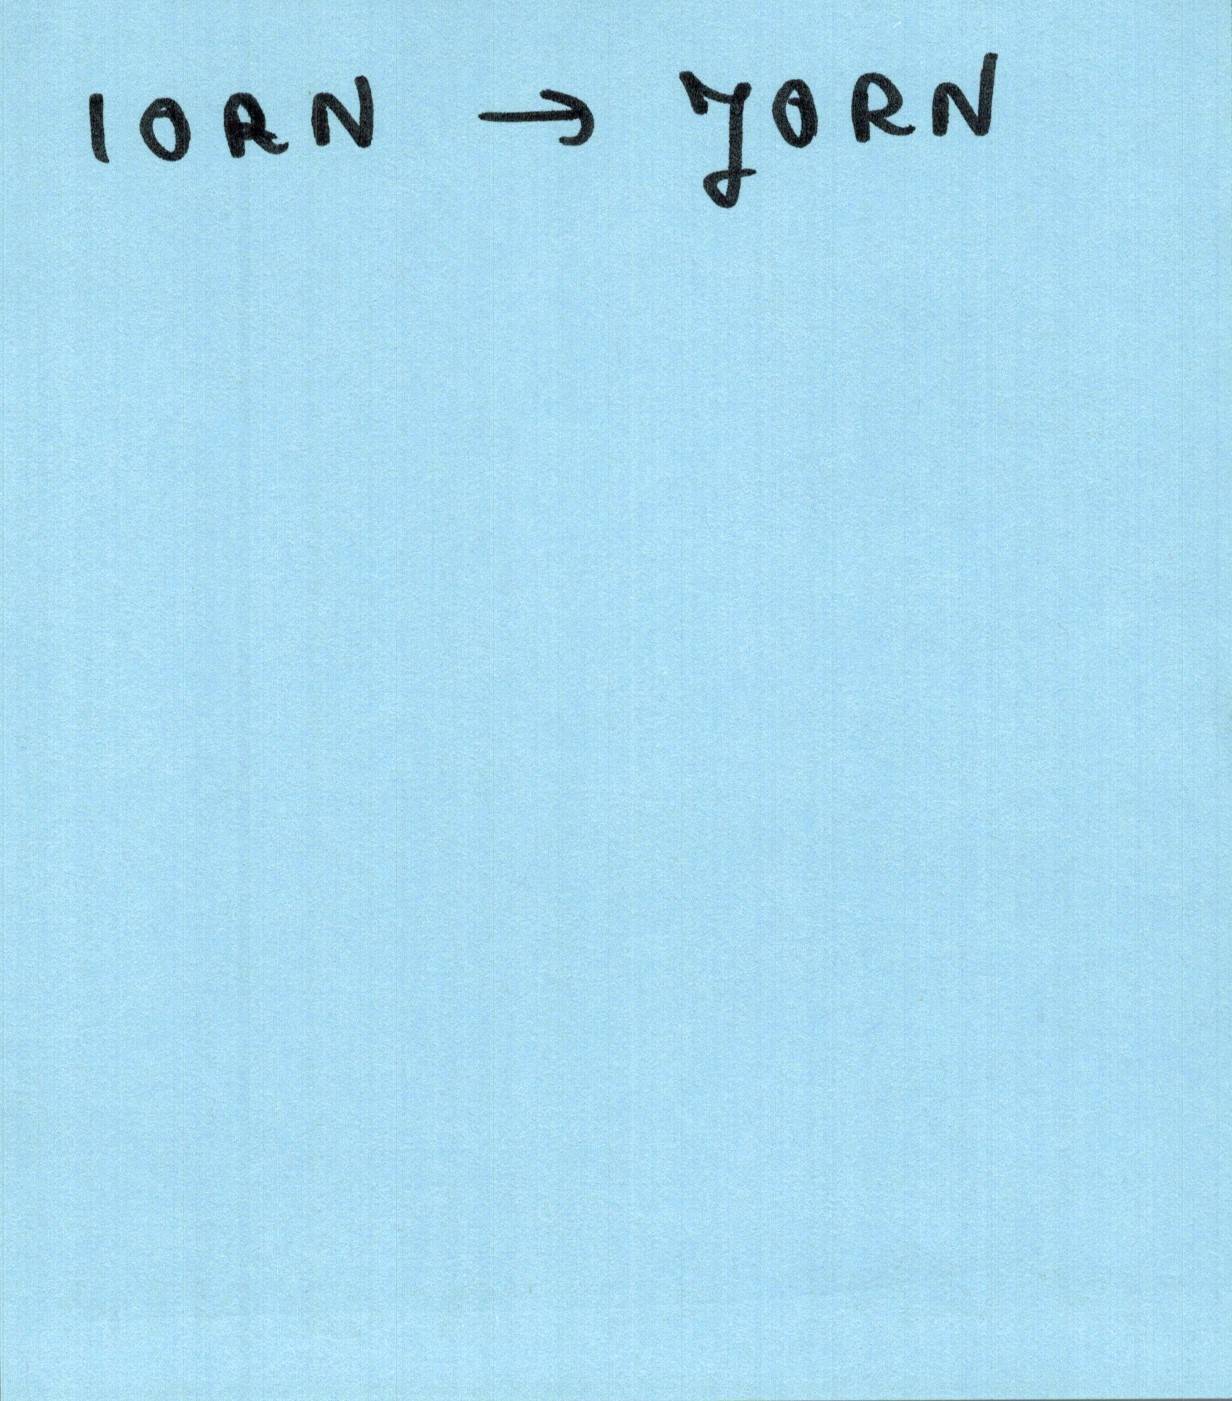 IORN → YORN